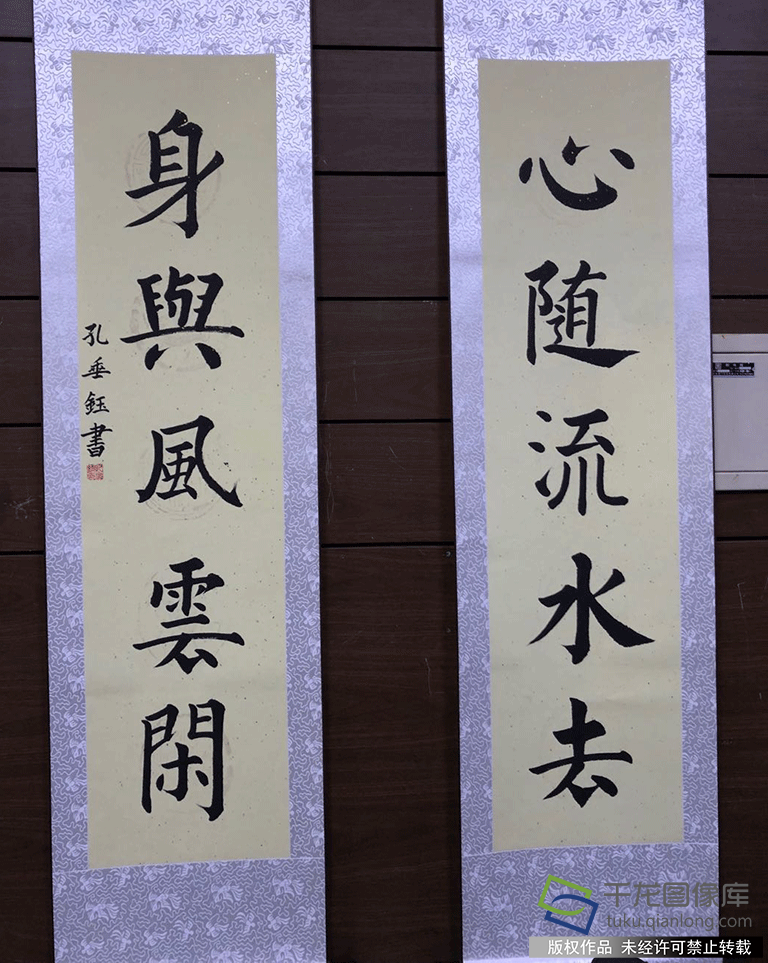 心随流水去
身與風雲閑
孔垂鈺書
千龙图像库
tuku.qianlong.com
版权作品 未经许可禁止转载